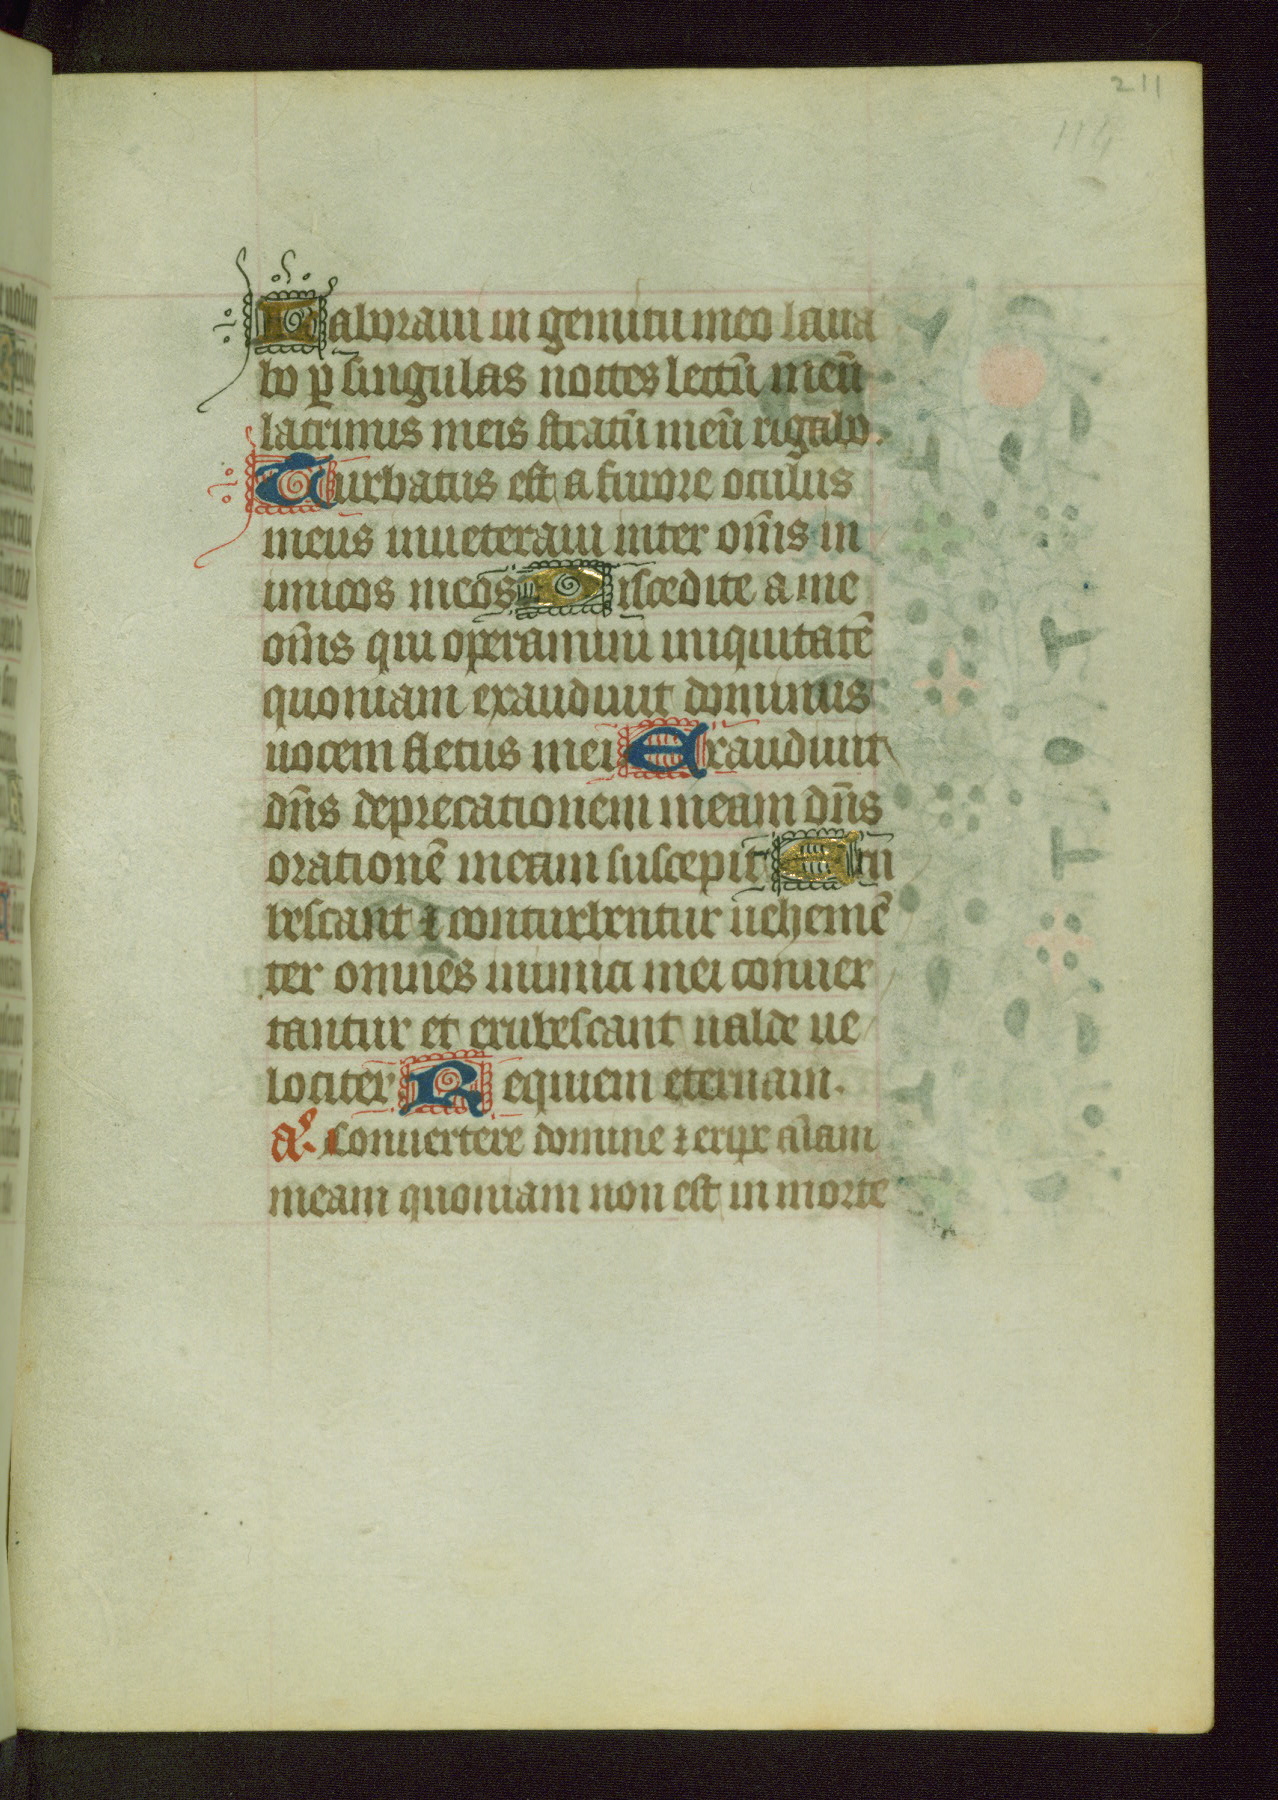 211
114
Laboraui in gemitu meo laua
bo ꝑ singulas noctes lectū meū
lacrimis meis stratū meū rigabo.
Turbatus est a furore oculus
meus inueteraui inter om̄s in
imicos meos Discedite a me
om̄s qui operamini iniquitatē
quoniam exaudiuit dominus
uocem fletus mei Exaudiuit
dn̄s deprecationem meam dn̄s
orationē meam suscepit Eru
bescant ⁊ conturbentur uehemē
ter omnes inimici mei conuer
tantur et erubescant ualde ue
lociter Requiem eternam.
a͛. Conuertere domine ⁊ eripe aīam
meam quoniam non est in morte